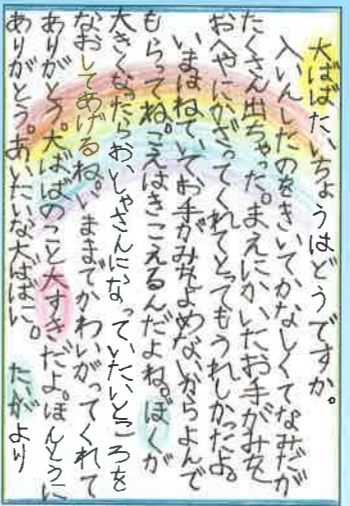 大ばばたいちょうはどうですか。
入いんしたのをきいてかなしくてなみだが
たくさん出ちゃった。まえにかいたお手がみを
おへやにかざってくれてとってもうれしかったよ。
いまはねていてお手がみをよめないからよんで
もらってね。こえはきこえるんだよね。ぼくが
大きくなったらおいしゃさんになっていたいところを
なおしてあげるね。いままでかわいがってくれて
ありがとう。大ばばのこと大すきだよ。ほんとうに
ありがとう。あいたいな大ばばに。 たいがより